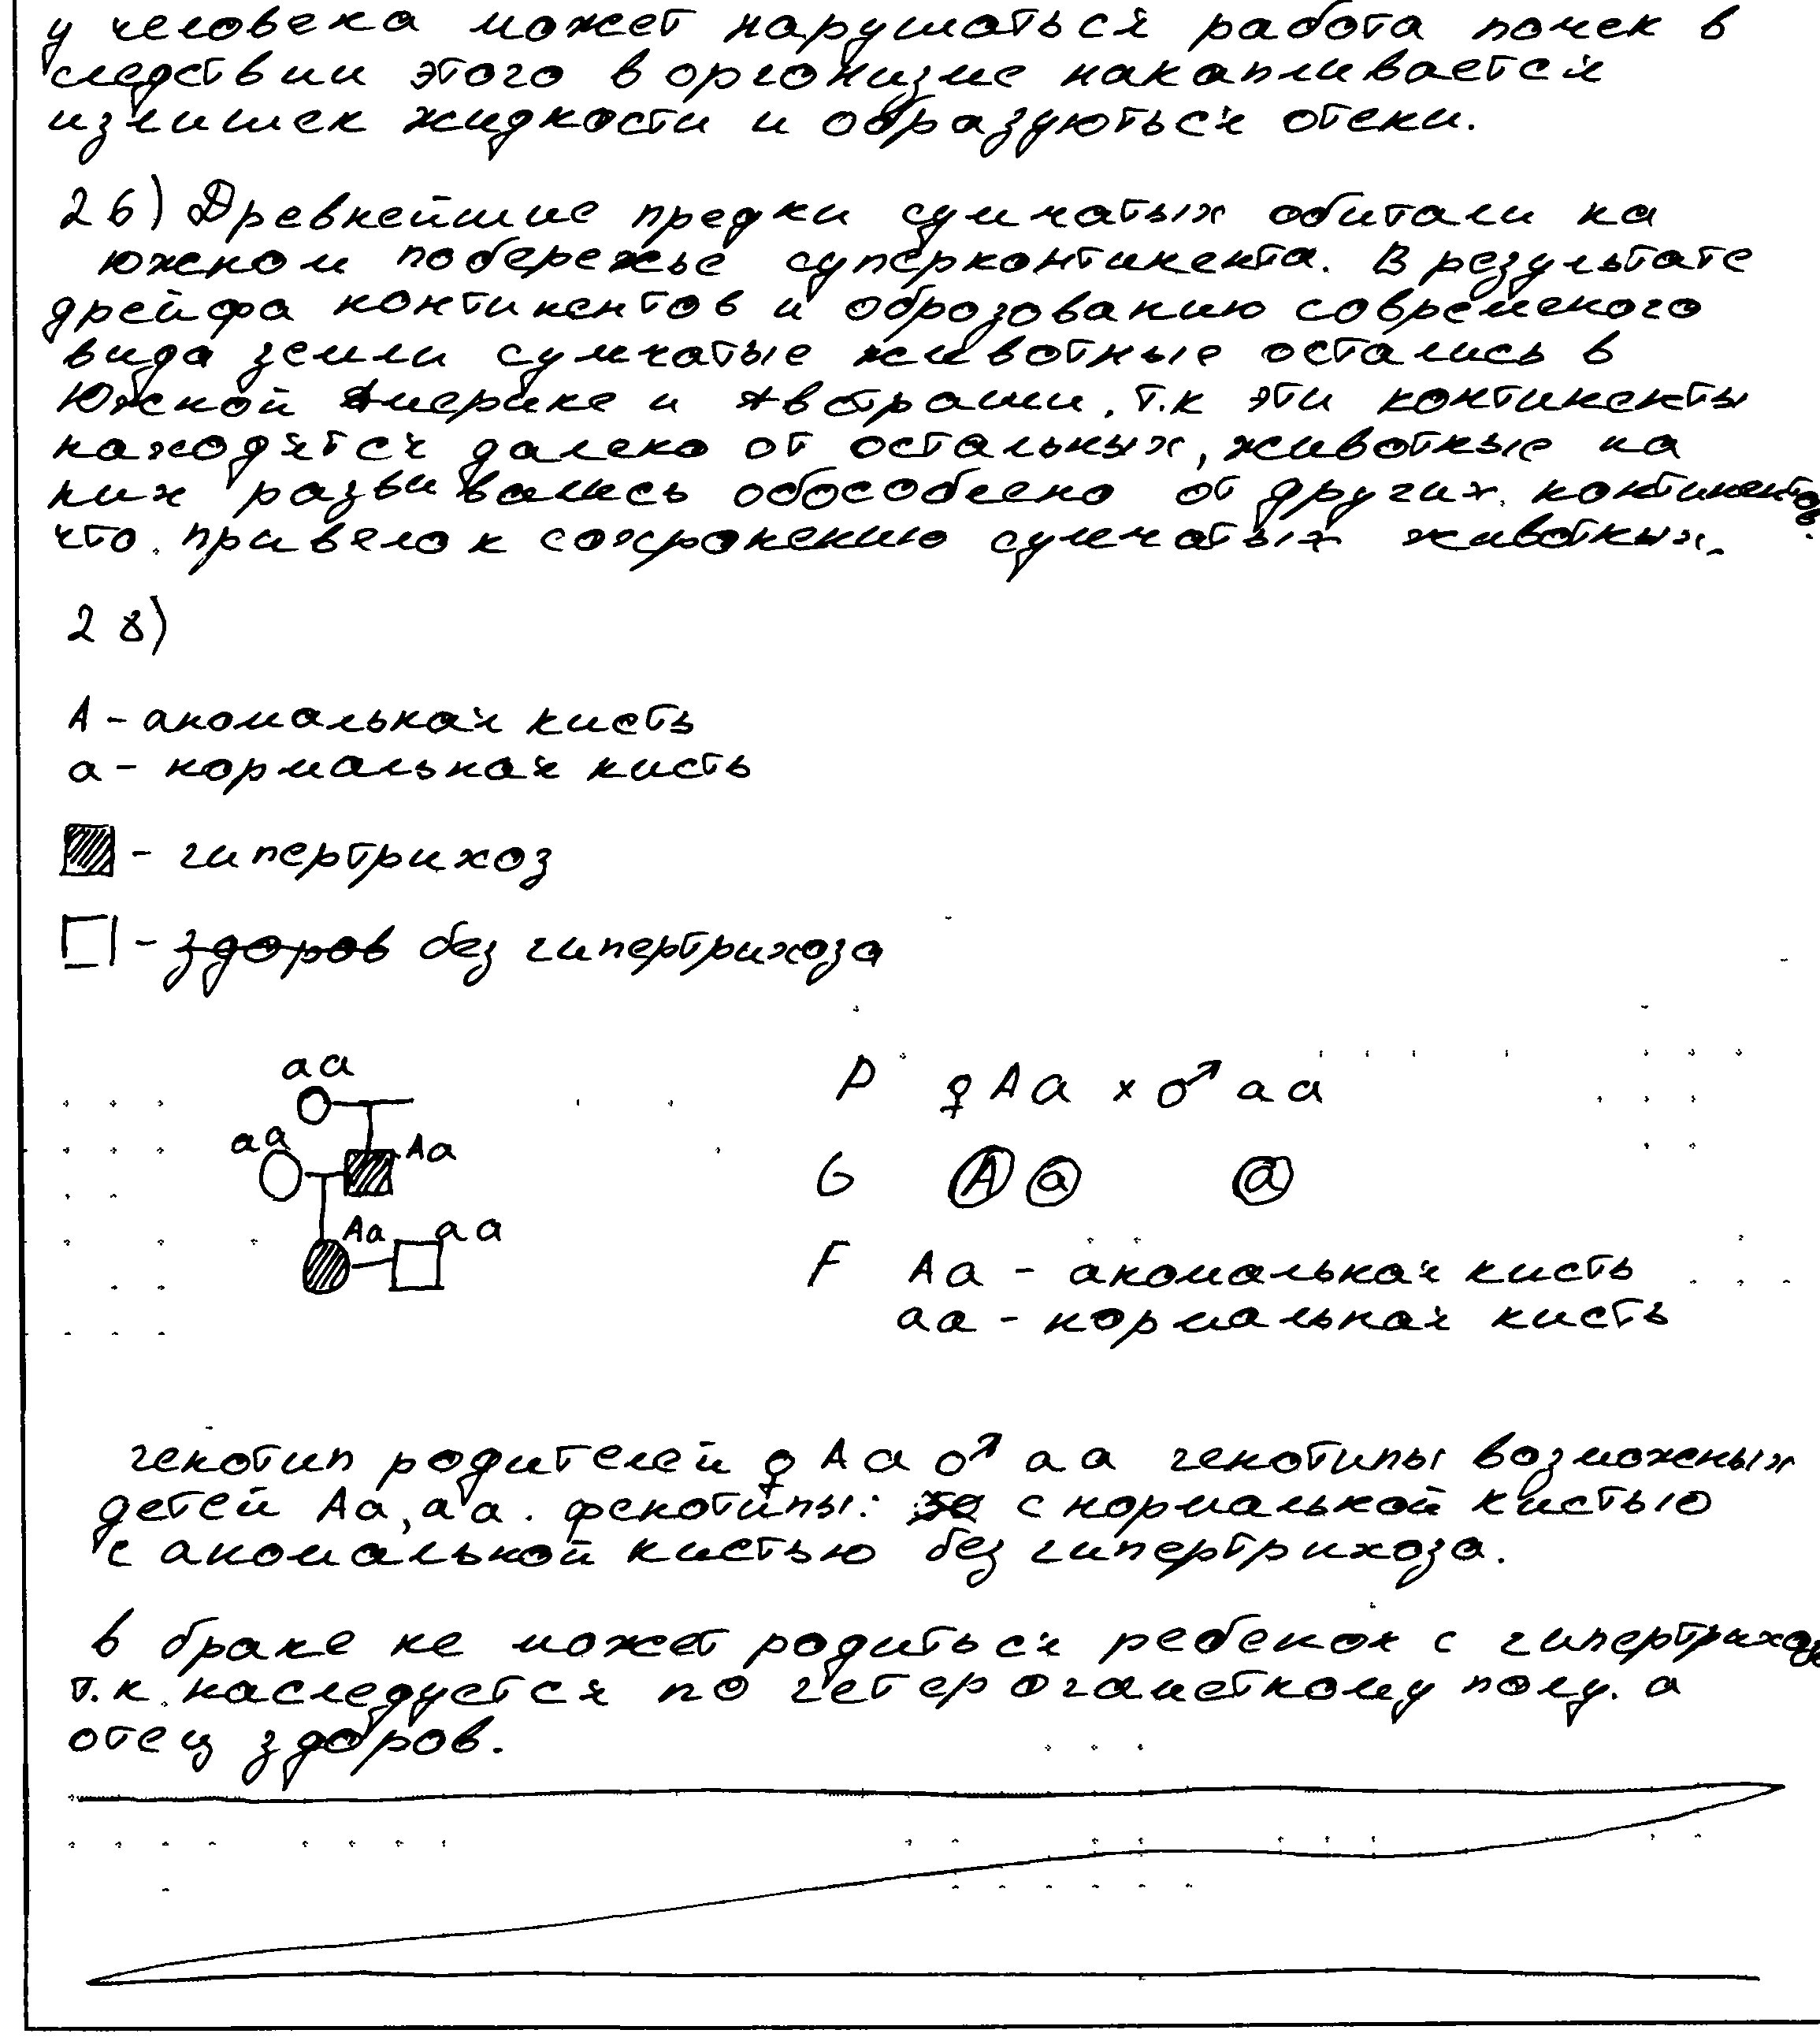 у человека может нарушаться работа почек в
следствии этого в оргонизме накапливается
излишек жидкости и образуються отеки.
26) Древнейшие предки сумчатых обитали на
южном побережье суперконтинента. В результате
дрейфа континентов и оброзованию современого
вида земли сумчатые животные остались в
Южской Америке и Австралии, т.к эти континенты
находятся далеко от остальных, животные на
них развивались обособлено от других континентов
что привело к сохронению сумчатых животных.
28)
А - аномальная кисть
а - нормальная кисть
- гипертрихоз
- здоров без гипертрихоза
аа
аа Аа
Аа аа
P ♀ Аа × ♂ аа
G А а а
F Аа - аномальная кисть
аа - нормальная кисть
генотип родителей ♀ Аа ♂ аа генотипы возможных
детей Аа, аа. фенотипы: с нормалькой кистью
с аномальной кистью без гипертрихоза.
в браке не может родиться ребенок с гипертрихозом
т.к. наследуется по гетерогаметному полу. а
отец здоров.